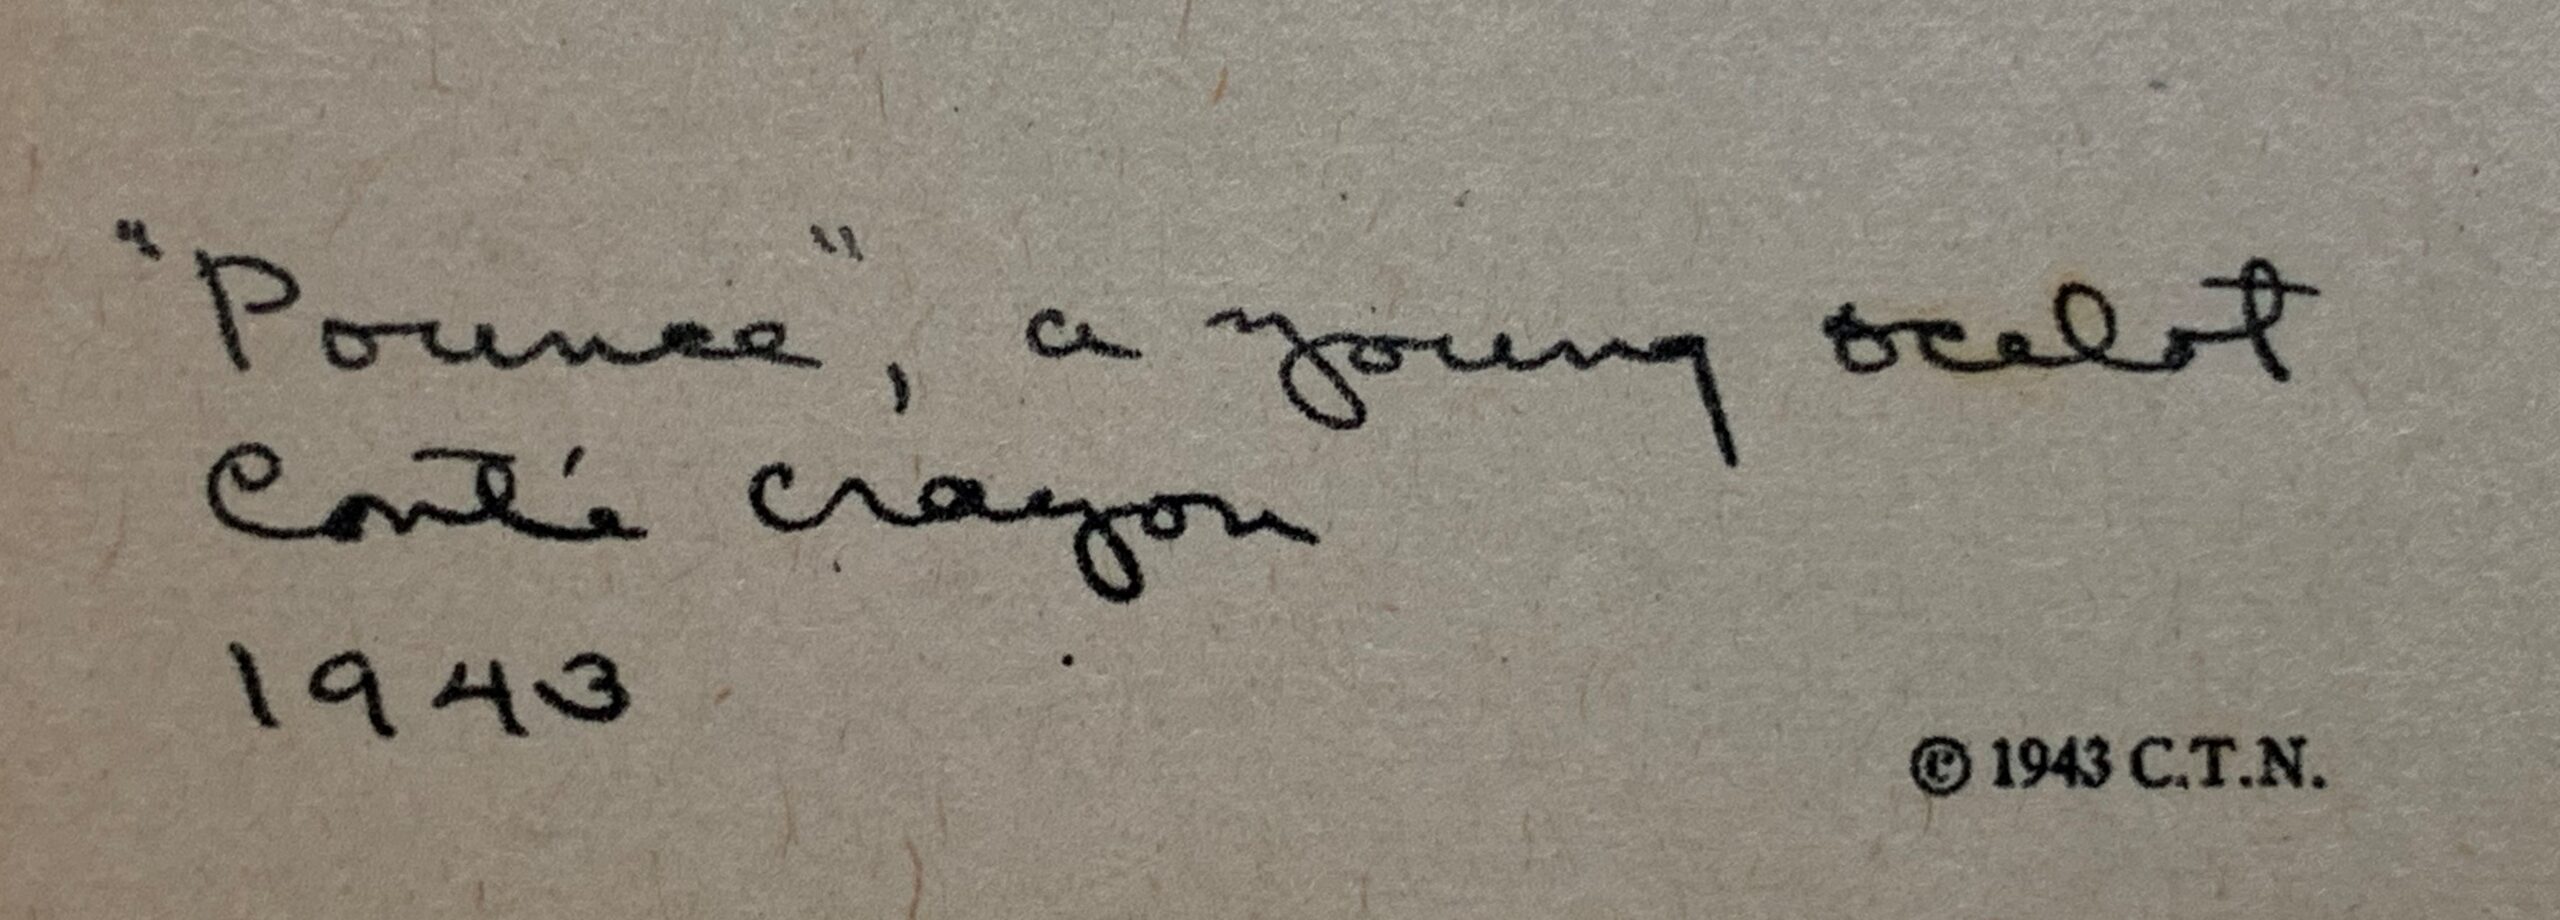 "Pounce", a young ocelot
Conté crayon
1943
© 1943 C.T.N.